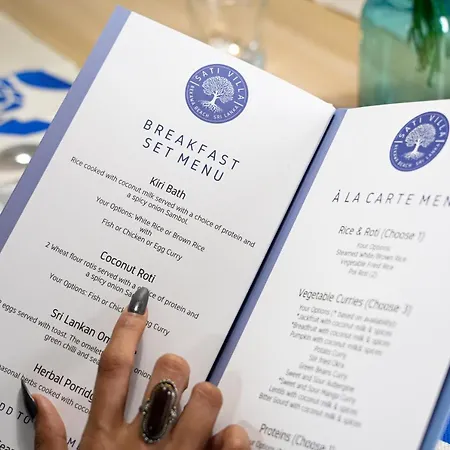 SATI VILLA
DEKANA BEACH SRI LANKA
BREAKFAST
SET MENU
Kiri Bath
Rice cooked with coconut milk served with a choice of protein and
a spicy onion Sambol.
Your Options: White Rice or Brown Rice
with
Fish or Chicken or Egg Curry
Coconut Roti
2 Wheat flour rotis served with a choice of protein and
a spicy onion Sambol
Your Options: Fish or Chicken or Egg Curry
Sri Lankan Om
eggs served with toast. The omelet
green chilli and
Herbal Porrid
seasonal herbs cooked with coco
ADD TO
M
Sea
SATI VILLA
BEACH SRI LANKA
À LA CARTE MEN
Rice & Roti (Choose 1)
Your Options
Steamed White Brown Rice
Vegetable Fried Rice
Pol Roti (2)
Vegetable Curries (Choose 3)
Your Options: (* based on availability)
*Jackfruit with coconut milk & spices
*Breadfruit with coconut milk & spices
Pumpkin with coconut milk & spices
Potato Curry
Stir fried Okra
Green Beans Curry
Sweet and Sour Aubergine
*Sweet and Sour Mango Curry
Lentils with coconut milk & spices
Bitter Gourd with coconut milk & spices
Proteins (Choose
Your Options: